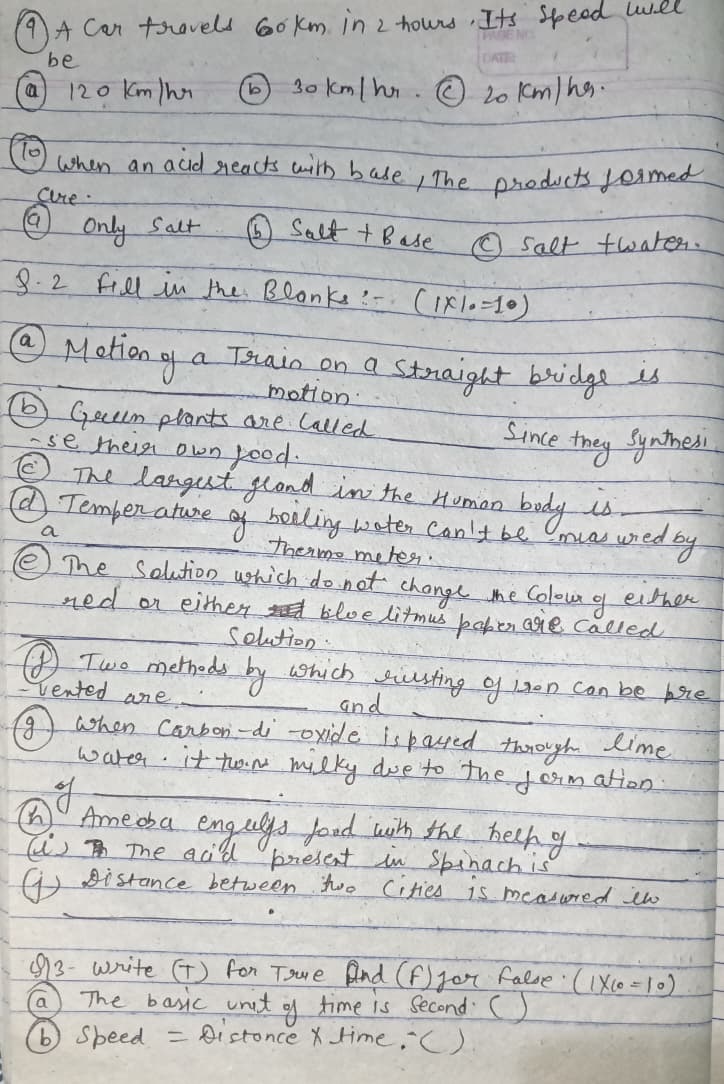 9 A Car travels 60 km in 2 hours. Its speed will
PAGE NO.
DATE:
be
a 120 km/hr b 30 km/hr. c 20 km/hr.
10 When an acid reacts with base, The products formed
are.
a Only Salt b Salt + Base c Salt + water.
Q.2 Fill in the Blanks :- (1x10=10)
a Motion of a Train on a straight bridge is
________ motion.
b Green plants are called ________ Since they Synthesi
-se their own food.
c The largest gland in the Human body is ______
d Temperature of boiling water can't be measured by
a ________ Thermometer.
e The Solution which do not change the Colour of either
red or either blue litmus paper are called
________ Solution.
f Two methods by which rusting of iron can be pre
-vented are ________ and ________.
g When Carbon-di-oxide is passed through lime
water. it turns milky due to the formation
of ________.
h Ameoba engulfs food with the help of ______
(i) The acid present in Spinach is ______
(j) Distance between two Cities is measured in
________.
Q3- Write (T) for True And (F) for False. (1x10=10)
a The basic unit of time is Second. ( )
b Speed = Distance x time. - ( )